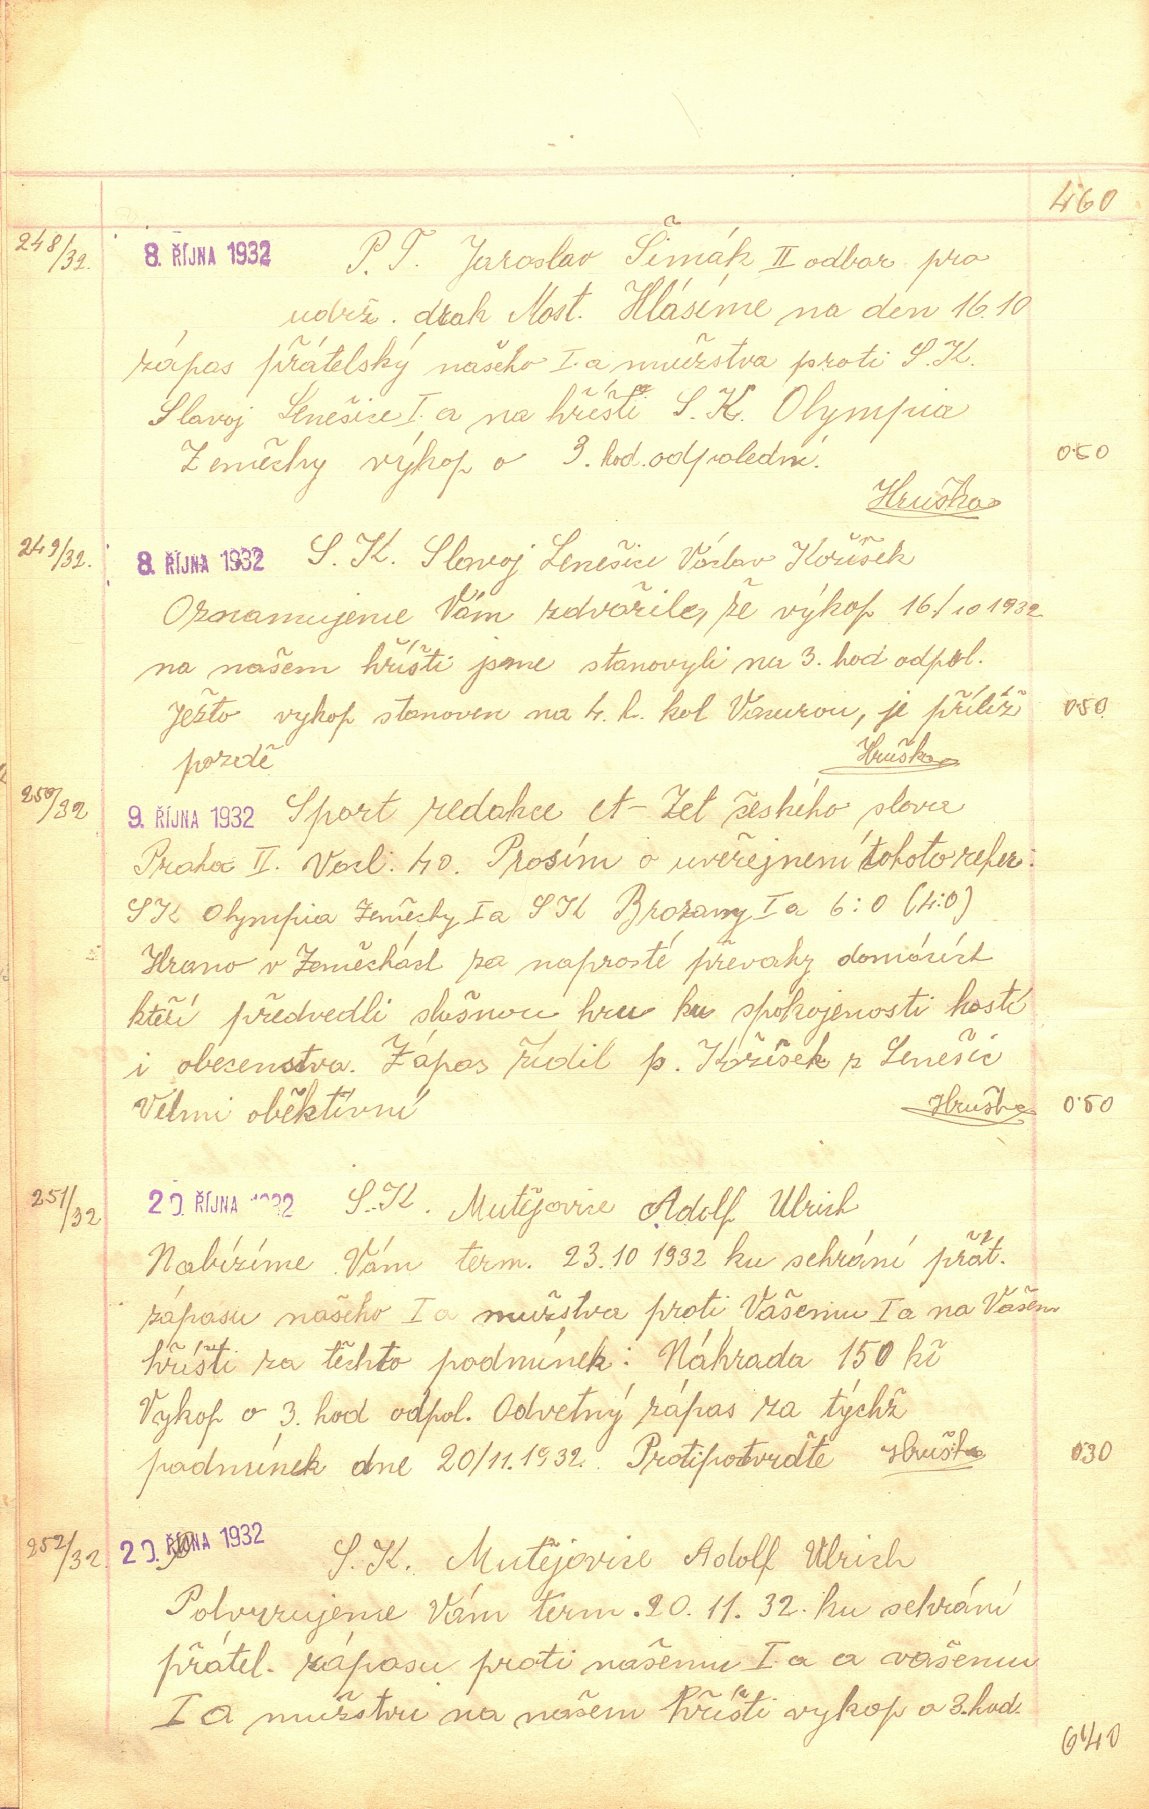 4·60
248/32. 8. ŘÍJNA 1932 P. T. Jaroslav Šimák II odbor pro
udrž. drah Most. Hlásíme na den 16.10
zápas přátelský našeho I.a mužstva proti S.K.
Slavoj Lenešice I.a na hřišti S.K. Olympia
Zeměchy výkop o 3. hod. odpolední. 0·50
Hruška
249/32. 8. ŘÍJNA 1932 S. K. Slavoj Lenešice Václav Kožíšek
Oznamujeme Vám zdvořile, že výkop 16./10 1932
na našem hřišti jsme stanovyli na 3. hod odpol.
Ježto vykop stanoven na 4. h. kol Vámi, je příliž 0·50
pozdě Hruška
250/32 9. ŘÍJNA 1932 Sport redakce A-Zet českého slova
Praha II. Vacl. 40. Prosím o uveřejnení tohoto refer:
SK Olympia Zeměchy Ia SK Brozany Ia 6:0 (4:0)
Hrano v Zeměchách za naprosté převahy domácích
kteří předvedli slušnou hru ku spokojenosti hostí
i obecenstva. Zápas řídil p. Kožíšek z Lenešic
Velmi oběktívní Hruška 0·50
251/32 20. ŘÍJNA 1932 S. K. Mutějovice Adolf Ulrich
Nabízíme Vám term. 23.10 1932 ku sehrání přát.
zápasu našeho I a mužstva proti Vašemu I a na Vašem
hřišti za těchto podmínek: Náhrada 150 kč
Vykop o 3. hod odpol. Odvetný zápas za týchž
podmínek dne 20/11.1932. Protipotvrdte Hruška 0·30
252/32 20. ŘÍJNA 1932 S. K. Mutějovice Adolf Ulrich
Potvrzujeme Vám term. 20. 11. 32. ku sehrání
přátel. zápasu proti našemu I. a a vašemu
I a mužstvu na našem hřišti vykop o 3. hod.
6·40